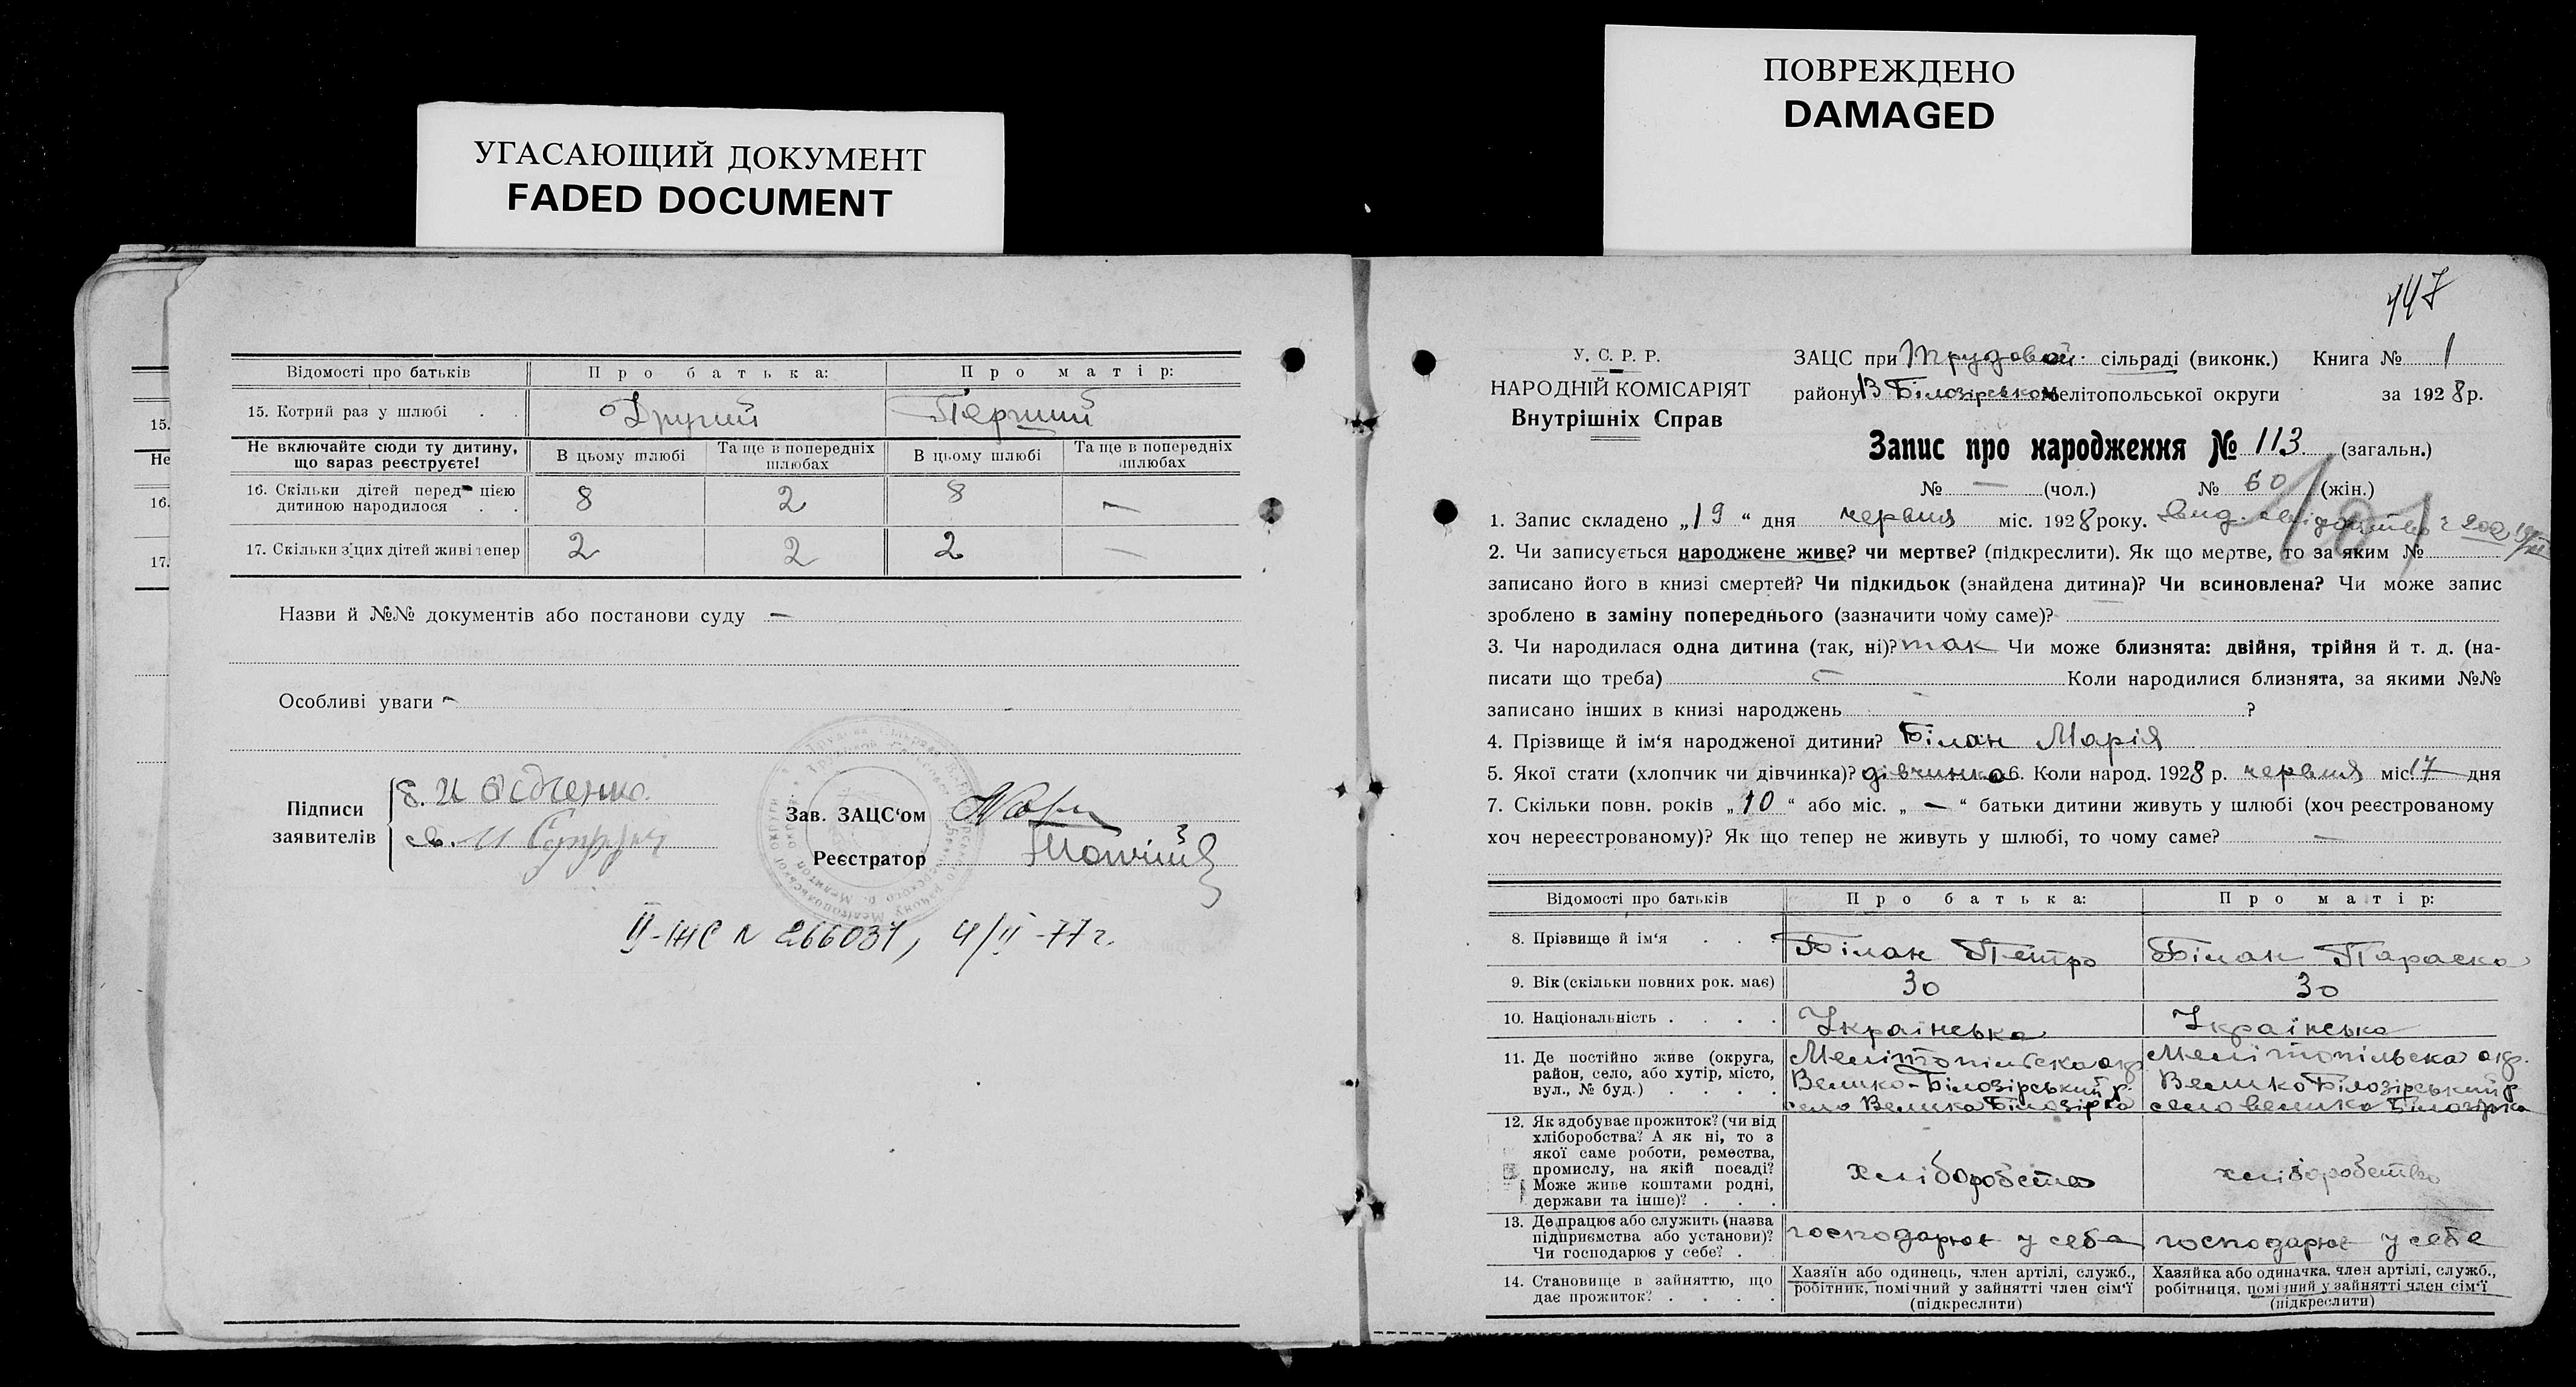 УГАСАЮЩИЙ ДОКУМЕНТ
FADED DOCUMENT
ПОВРЕЖДЕНО
DAMAGED
15.
Не
16.
17.
Відомості про батьків Про батька: Про матір:
15. Котрий раз у шлюбі . . Другий Перший
Не включайте сюди ту дитину, що зараз реєструєте! В цьому шлюбі Та ще в попередніх шлюбах В цьому шлюбі Та ще в попередніх шлюбах
16. Скільки дітей перед цією
дитиною народилося . . 8 2 8 —
17. Скільки з цих дітей живі тепер 2 2 2 —
Назви й №№ документів або постанови суду —
Особливі уваги –
Підписи
заявителів
Зав. ЗАЦС‘ом
Реєстратор
II-ЖС N 266031, 4/II-77 г.
147
У. С. Р. Р.
НАРОДНІЙ КОМІСАРІЯТ
Внутрішніх Справ
ЗАЦС при Трудовой сільраді (виконк.) Книга № 1
району В Білозірськом Мелітопольської округи за 1928 р.
Запис про народження № 113 (загальн.)
№ — (чол.) № 60 (жін.)
1. Запис складено „19“ дня червня міс. 1928 року.
2. Чи записується народжене живе? чи мертве? (підкреслити). Як що мертве, то за яким №
записано його в книзі смертей? Чи підкидьок (знайдена дитина)? Чи всиновлена? Чи може запис
зроблено в заміну попереднього (зазначити чому саме)?
3. Чи народилася одна дитина (так, ні)? так Чи може близнята: двійня, трійня й т. д. (на-
писати що треба) — Коли народилися близнята, за якими №№
записано інших в книзі народжень ?
4. Прізвище й ім‘я народженої дитини? Білан Марія
5. Якої стати (хлопчик чи дівчинка)? дівчинка 6. Коли народ. 1928 р. червня міс. 17 дня
7. Скільки повн. років „10“ або міс. „—“ батьки дитини живуть у шлюбі (хоч реєстрованому
хоч нереєстрованому)? Як що тепер не живуть у шлюбі, то чому саме? —
Відомості про батьків Про батька: Про матір:
8. Прізвище й ім‘я . . . Білан Петро Білан Параска
9. Вік (скільки повних рок. має) 30 30
10. Національність . . . . Українська Українська
11. Де постійно живе (округа,
район, село, або хутір, місто,
вул., № буд.) . . . .
Мелітопільска окр. Мелітопільска окр.
Велико-Білозірський р. Велико Білозірський р
село Велика Білозірка село велика Білозірка
12. Як здобуває прожиток? (чи від
хліборобства? А як ні, то з
якої саме роботи, ремества,
промислу, на якій посаді?
Може живе коштами родні,
держави та інше)? . . .
хліборобство хліборобство
13. Де працює або служить (назва
підприємства або установи)?
Чи господарює у себе? .
господарює у себе господарює у себе
14. Становище в зайняттю, що
дає прожиток? . . . .
Хазяїн або одинець, член артілі, служб.,
робітник, помічний у зайнятті член сім‘ї
(підкреслити)
Хазяйка або одиначка, член артілі, служб.,
робітниця, помічний у зайнятті член сім‘ї
(підкреслити)